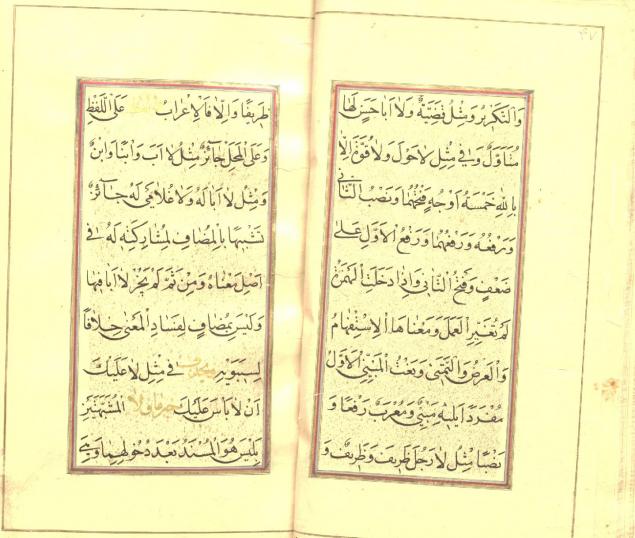 ٤٧
وَالتَّكْرِيرُ وَمِثْلُ قَضِيَّةٌ وَلَا اَبَا حَسَنٍ لَهَا
مُتَاَوَّلٌ وَفِي مِثْلِ لَاحَوْلَ وَلَا قُوَّةَ اِلَّا
بِاللهِ خَمْسَةُ اَوْجُهٍ فَتْحُهُمَا وَنَصْبُ الثَّانِي
وَرَفْعُهُ وَرَفْعُهُمَا وَرَفْعُ الْاَوَّلِ عَلَى
ضَعْفٍ وَفَتْحُ الثَّانِي وَاِذَا دَخَلَتِ الْهَمْزَةُ
لَمْ تُغَيِّرِ الْعَمَلَ وَمَعْنَاهَا الْاِسْتِفْهَامُ
وَالْعَرْضُ وَالتَّمَنِّي وَنَعْتُ الْمَبْنِيِّ الْاَوَّلُ
مُفْرَدًا يَلِيهِ مَبْنِيٌّ وَمُعْرَبٌ رَفْعًا وَ
نَصْبًا مِثْلُ لَا رَجُلَ ظَرِيفَ وَظَرِيفٌ وَ
ظَرِيفًا وَاِلَّا فَالْاِعْرَابُ عَلَى اللَّفْظِ
وَعَلَى الْمَحَلِّ جَائِزٌ مِثْلُ لَا اَبَ وَابْنًا وَابْنٌ
وَمِثْلُ لَا اَبَا لَهُ وَلَا غُلَامَيْ لَهُ جَائِزٌ
تَشْبِيهًا بِالْمُضَافِ لِمُشَارَكَتِهِ لَهُ فِي
اَصْلِ مَعْنَاهُ وَمِنْ ثَمَّ لَمْ يَجُزْ لَا اَبَا فِيهَا
وَلَيْسَ بِمُضَافٍ لِفَسَادِ الْمَعْنَى خِلَافًا
لِسِيبَوَيْهِ وَيُحْذَفُ فِي مِثْلِ لَا عَلَيْكَ
اَيْ لَا بَأْسَ عَلَيْكَ خبر ما ولا الْمُشَبَّهَتَيْنِ
بِلَيْسَ هُوَ الْمُسْنَدُ بَعْدَ دُخُولِهِمَا وَهِيَ